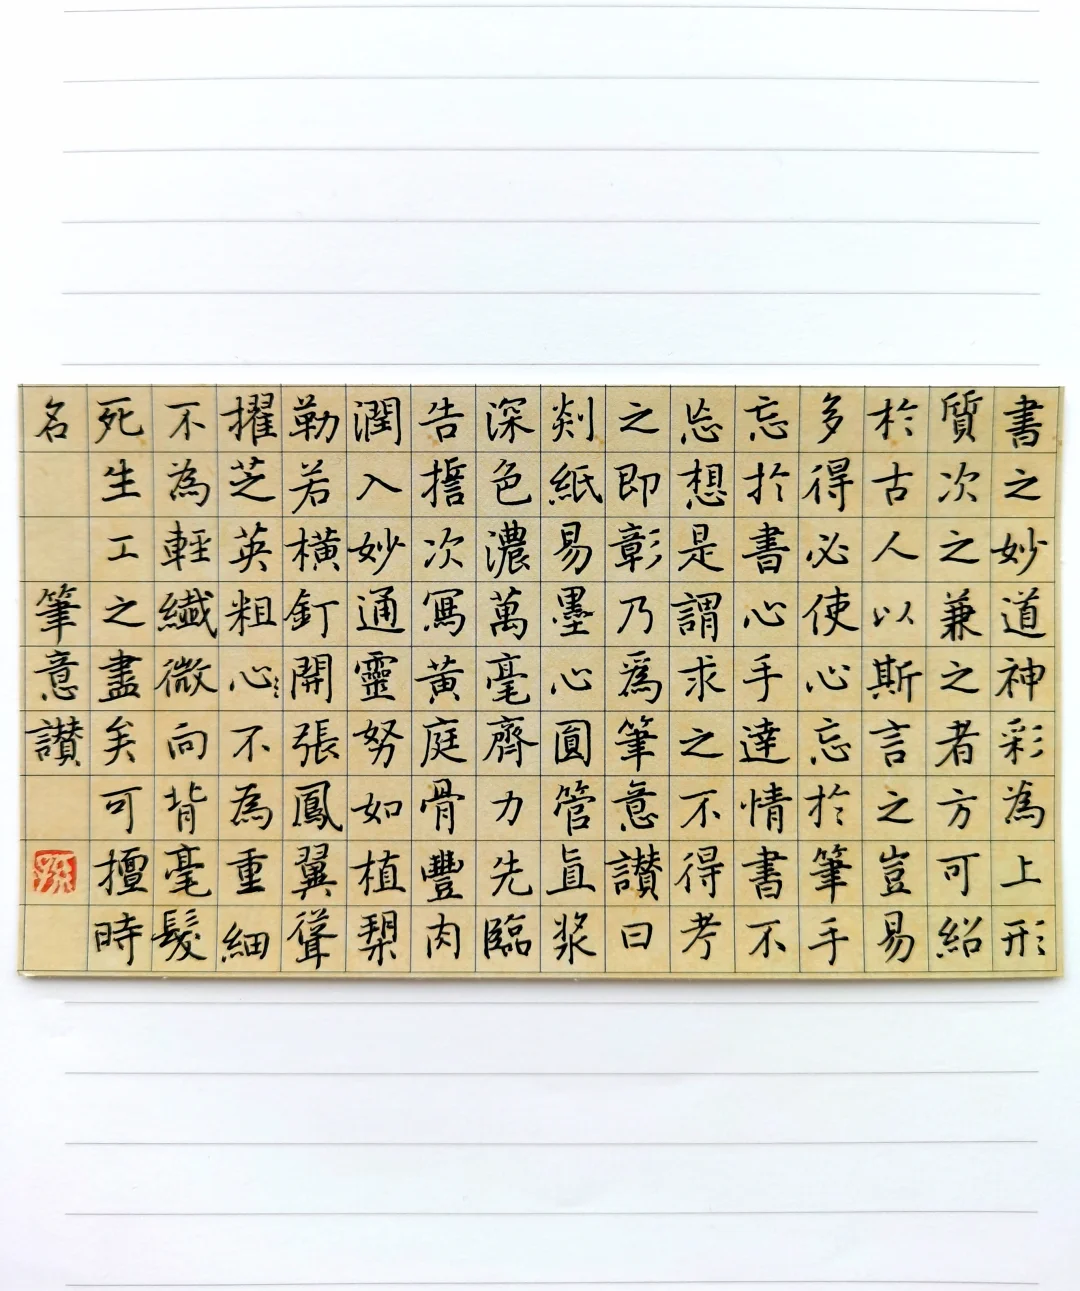 書之妙道神彩為上形
質次之兼之者方可紹
於古人以斯言之豈易
多得必使心忘於筆手
忘於書心手達情書不
㤀想是謂求之不得考
之即彰乃爲筆意讃曰
剡紙易墨心圓管直漿
深色濃萬毫齊力先臨
告誓次寫黃庭骨豐肉
潤入妙通靈努如植槊
勒若橫釘開張鳳翼聳
擢芝英粗心不為重細
不為輕纖微向背毫髮
死生工之盡矣可擅時
名
筆意讃